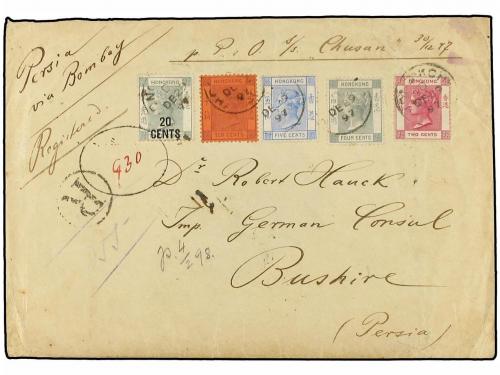 p. P. & O. S/s. "Chusan" 30/12 97
Persia
via Bombay
Registered.
HONGKONG
20
CENTS
HONGKONG
TEN CENTS
HONGKONG
FIVE CENTS
HONGKONG
FOUR CENTS
HONGKONG
TWO CENTS
DE 29
97
930
R
Dr Robert Hauck.
Imp. German Consul
Bushire
(Persia)
p. 4/2 98.